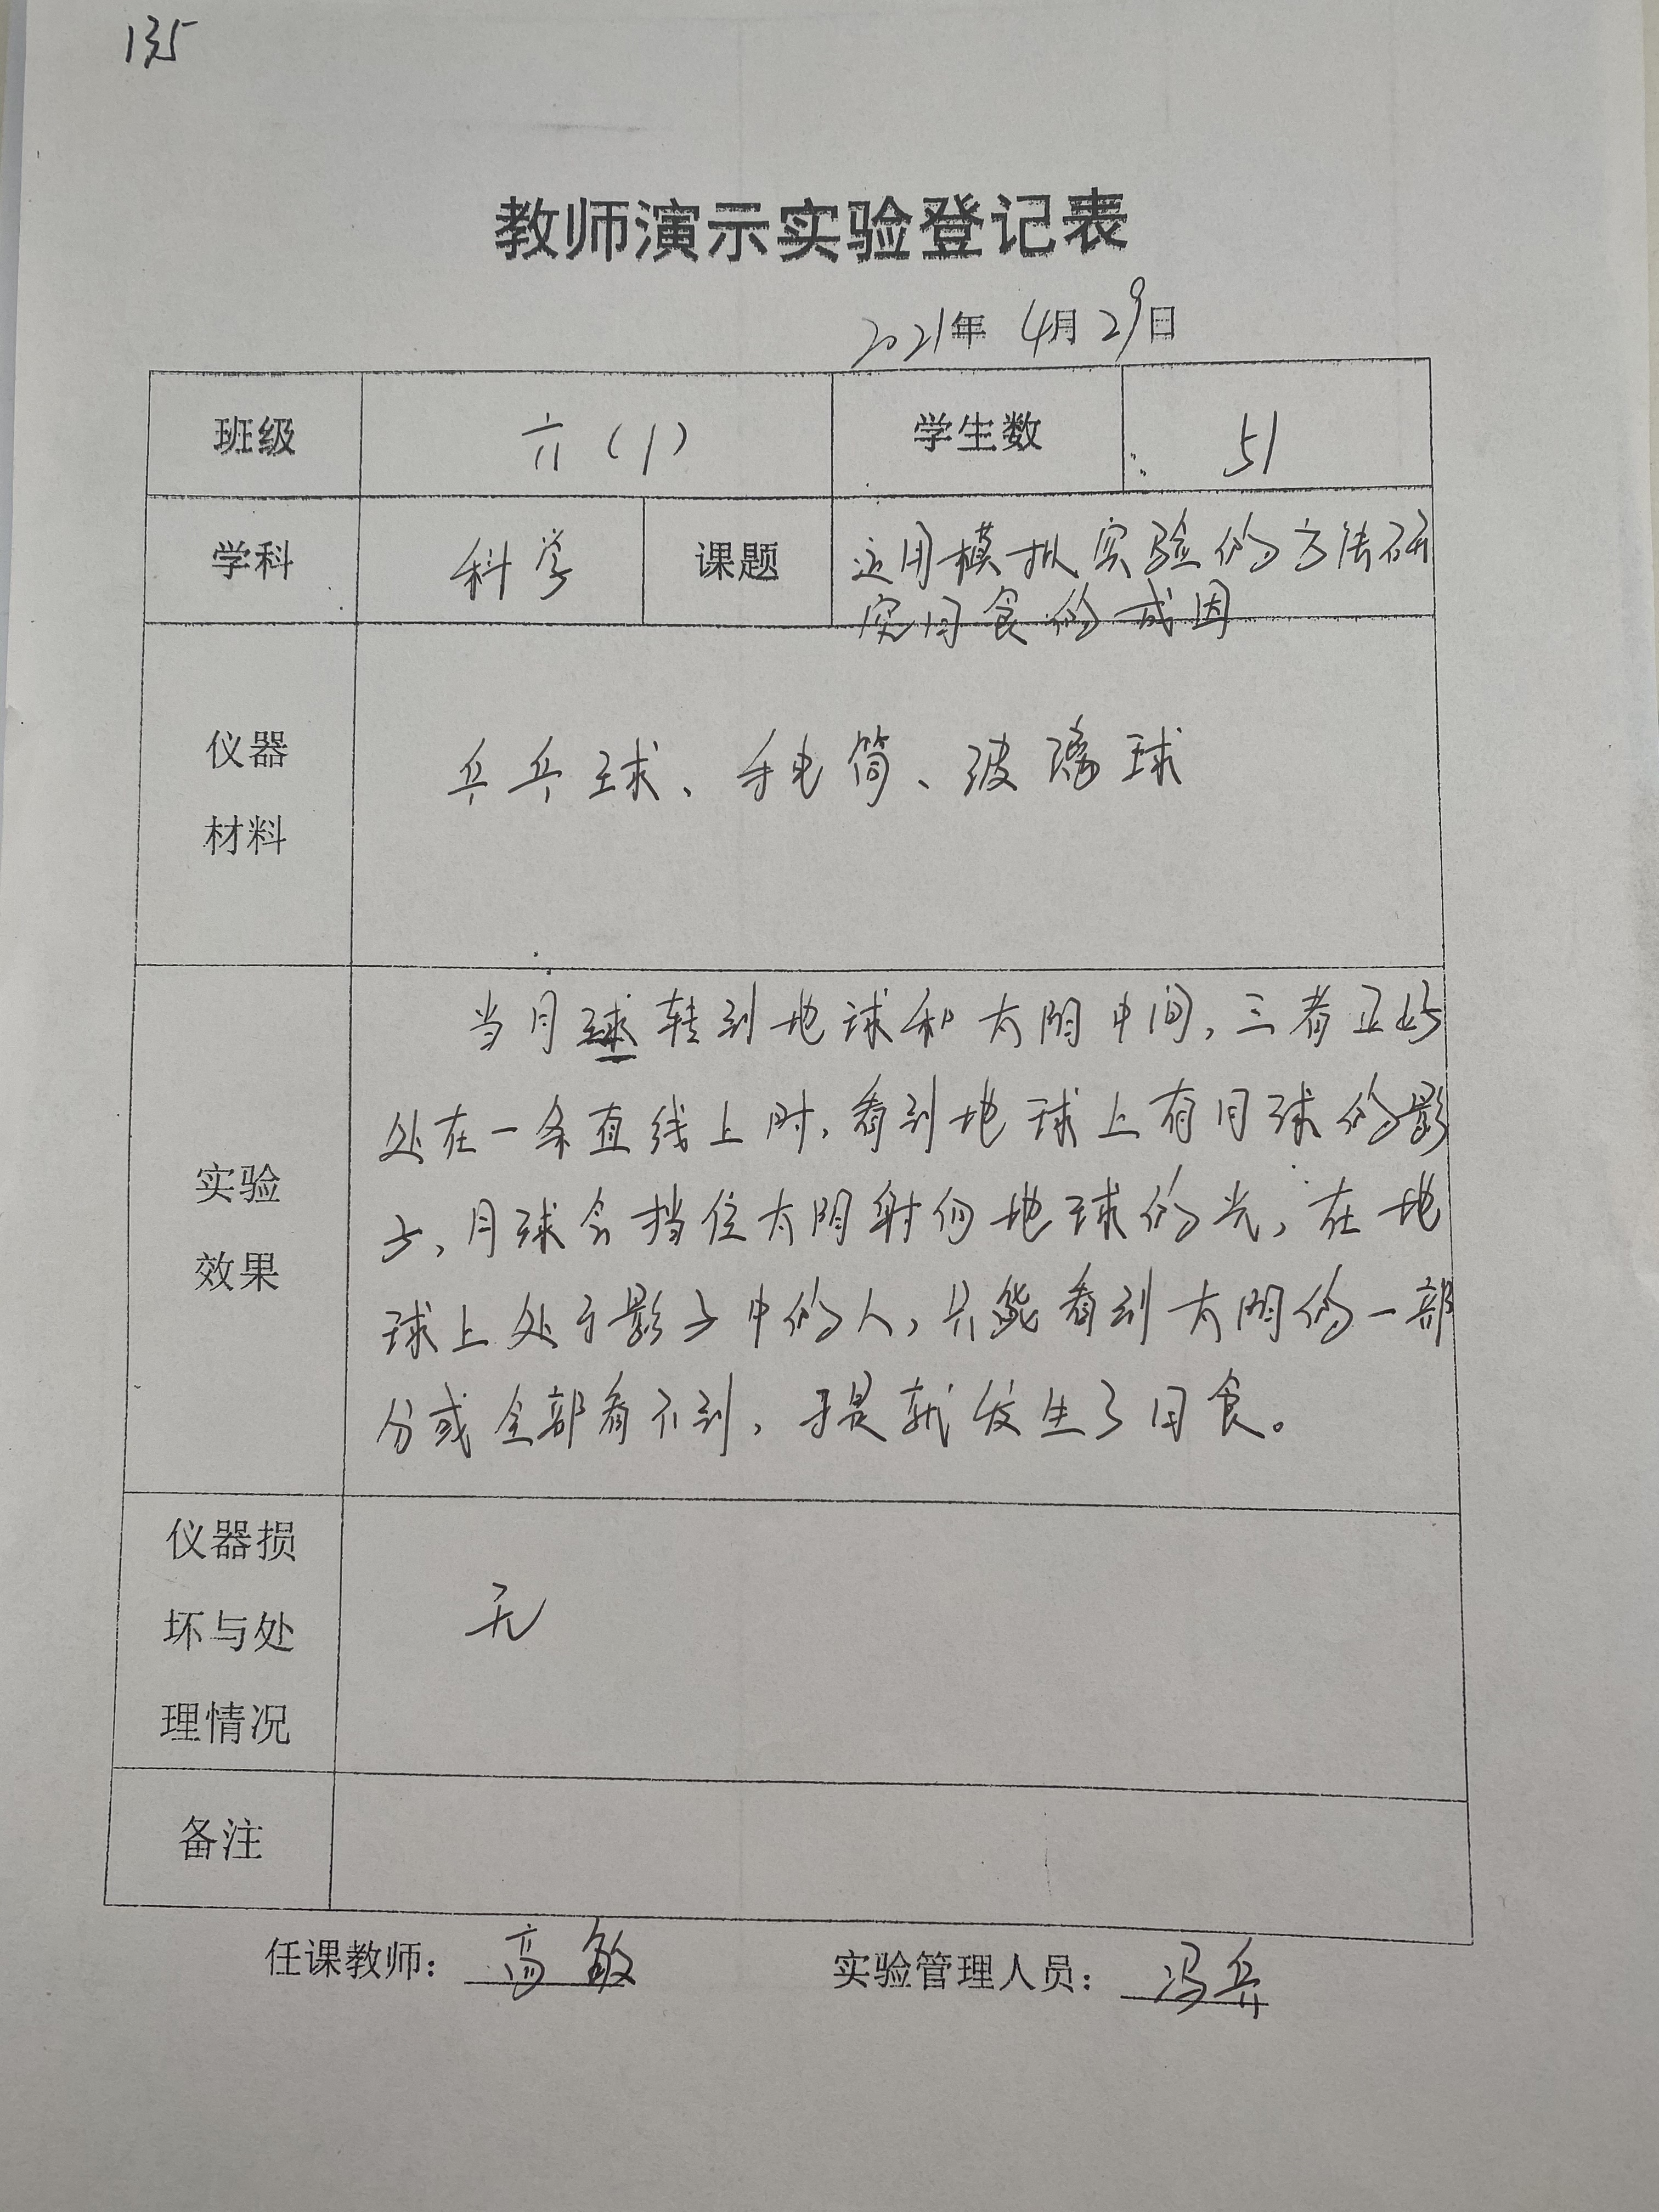 135
教师演示实验登记表
2021年 4月29日
班级 六(1) 学生数 51
学科 科学 课题 运用模拟实验的方法研
究日食的成因
仪器
材料
乒乓球、手电筒、玻璃球
当月球转到地球和太阳中间,三者正好
处在一条直线上时,看到地球上有月球的影
子,月球会挡住太阳射向地球的光,在地
球上处于影子中的人,只能看到太阳的一部
分或全部看不到,于是就发生了日食。
实验
效果
仪器损
坏与处
理情况
无
备注
任课教师: 高敏 实验管理人员: 冯兵